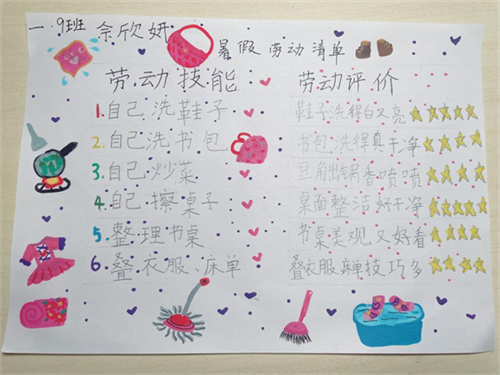 一.9班 佘欣妍
暑假劳动清单
劳动技能 劳动评价
1.自己洗鞋子 鞋子洗得白又亮
2.自己洗书包 书包洗得真干净
3.自己炒菜 豆角出锅香喷喷
4.自己擦桌子 桌面整洁好干净
5.整理书桌 书桌美观又好看
6.叠衣服、床单 叠衣服床单技巧多